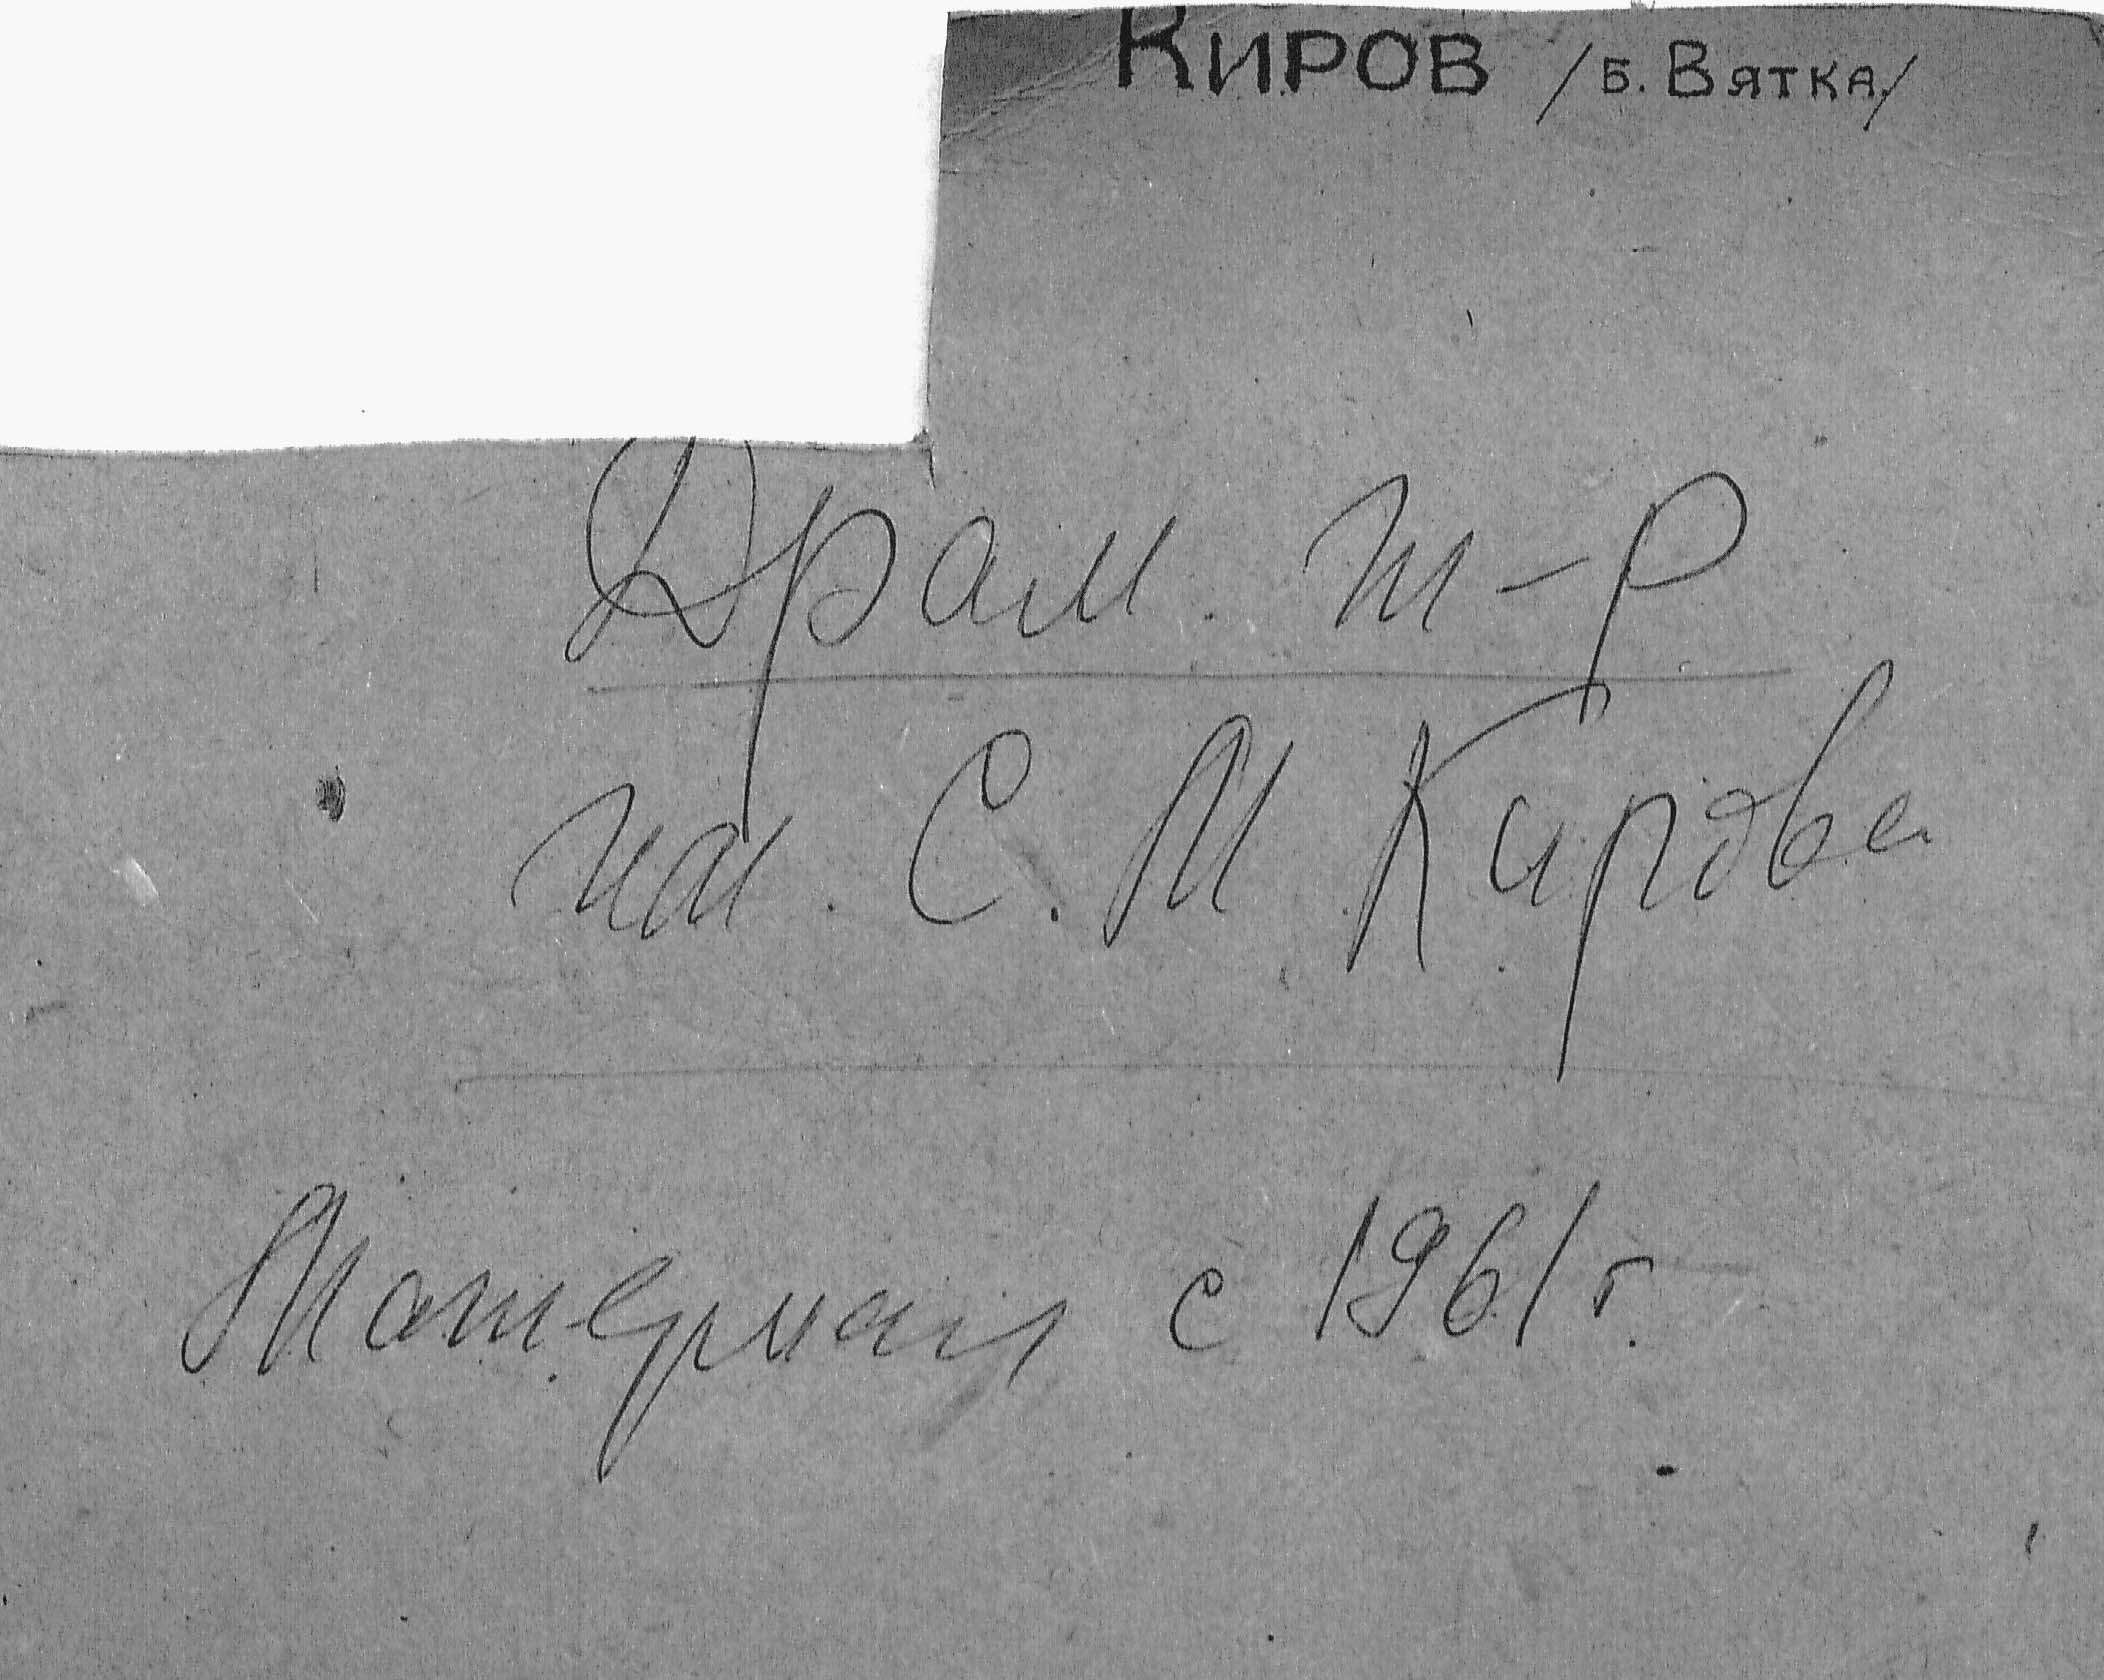 Киров /б. Вятка/
Драм. т-р
им. С. М. Кирова
Материал с 1961 г.